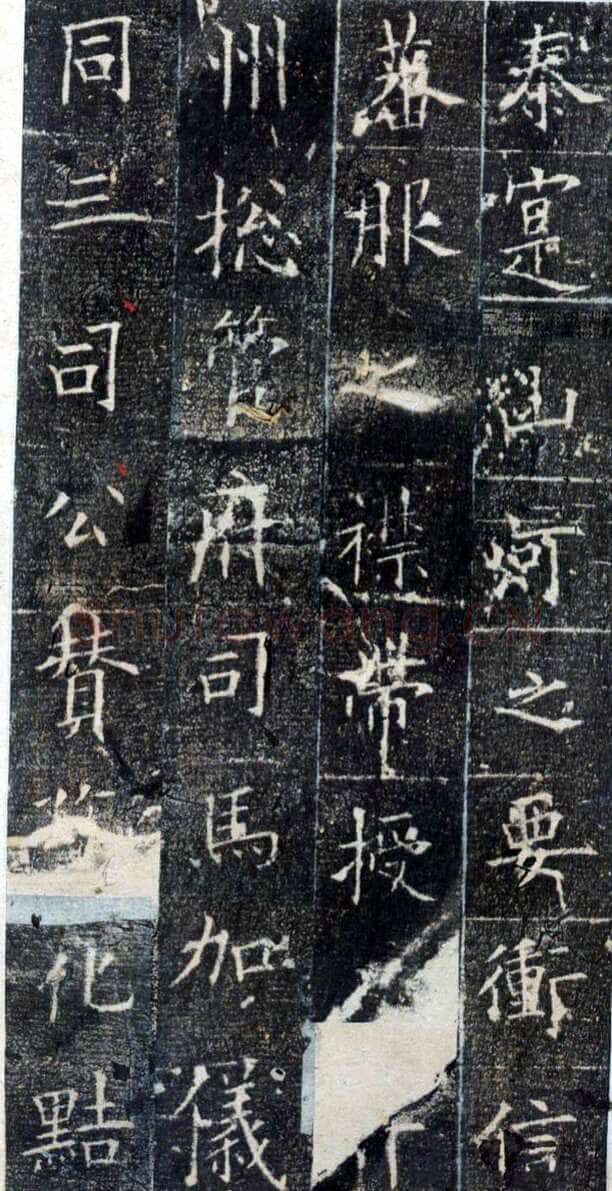 秦寔山河之要衝信
蕃服之襟帶授
州揔管府司馬加儀
同三司公賛化黠
shufawang.cn